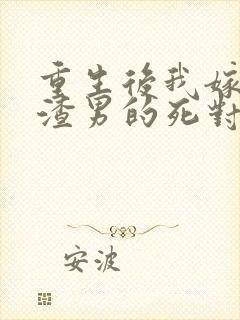 重生後我嫁
渣男的死對
安波